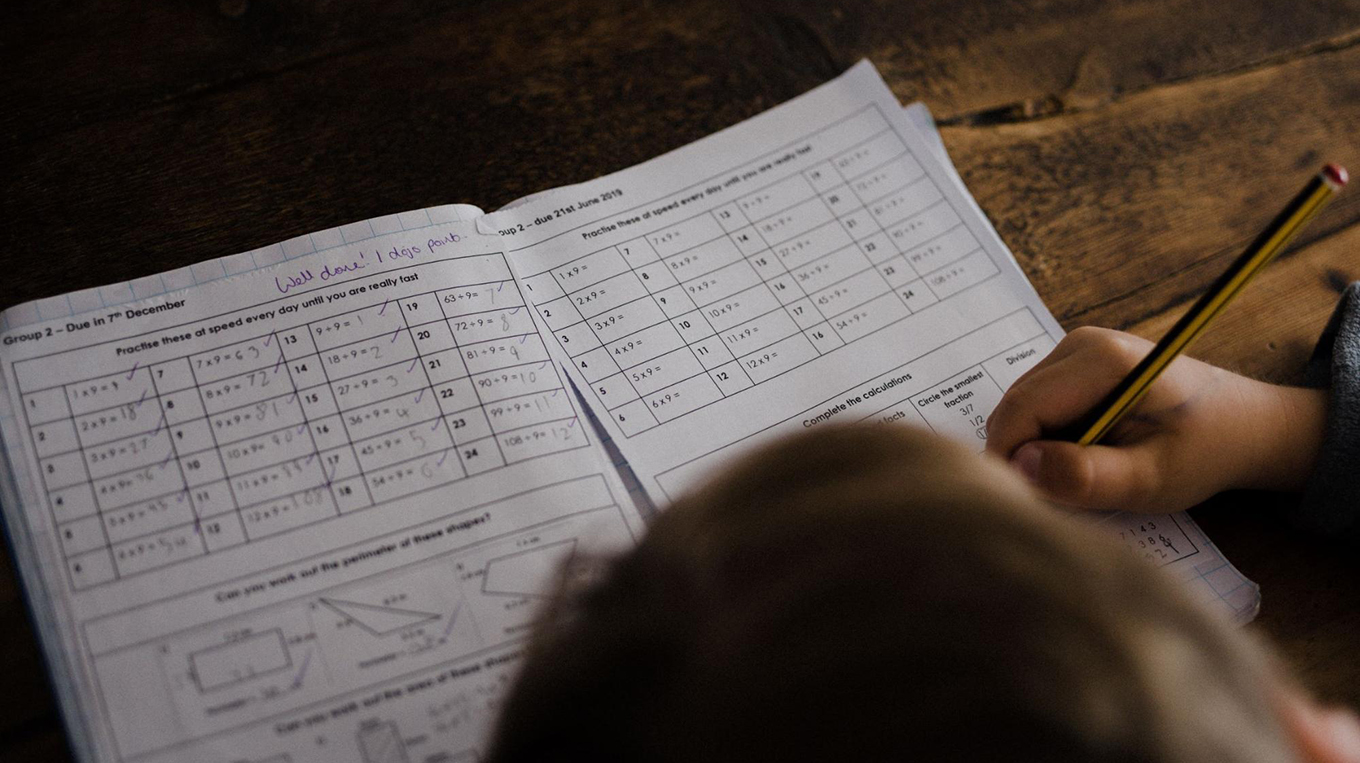 Well done! 1 dojo point.
Group 2 – Due in 7th December
Practise these at speed every day until you are really fast
1 1 x 9 = 9 7 7 x 9 = 63 13 9 ÷ 9 = 1 19 63 ÷ 9 = 7
2 2 x 9 = 18 8 8 x 9 = 72 14 18 ÷ 9 = 2 20 72 ÷ 9 = 8
3 3 x 9 = 27 9 9 x 9 = 81 15 27 ÷ 9 = 3 21 81 ÷ 9 = 9
4 4 x 9 = 36 10 10 x 9 = 90 16 36 ÷ 9 = 4 22 90 ÷ 9 = 10
5 5 x 9 = 45 11 11 x 9 = 99 17 45 ÷ 9 = 5 23 99 ÷ 9 = 11
6 6 x 9 = 54 12 12 x 9 = 108 18 54 ÷ 9 = 6 24 108 ÷ 9 = 12
Can you work out the perimeter of these shapes?
Can you work out the area of these
oup 2 – due 21st June 2019
Practise these at speed every day until you are really fast
1 1 x 9 = 7 7 x 9 = 13 9 ÷ 9 = 19 63 ÷ 9 =
2 2 x 9 = 8 8 x 9 = 14 18 ÷ 9 = 20 72 ÷ 9 =
3 3 x 9 = 9 9 x 9 = 15 27 ÷ 9 = 21 81 ÷ 9 =
4 4 x 9 = 10 10 x 9 = 16 36 ÷ 9 = 22 90 ÷ 9 =
5 5 x 9 = 11 11 x 9 = 17 45 ÷ 9 = 23 99 ÷ 9 =
6 6 x 9 = 12 12 x 9 = 16 54 ÷ 9 = 24 108 ÷ 9 =
Complete the calculations
facts
Circle the smallest
fraction
3/7
1/2
Division